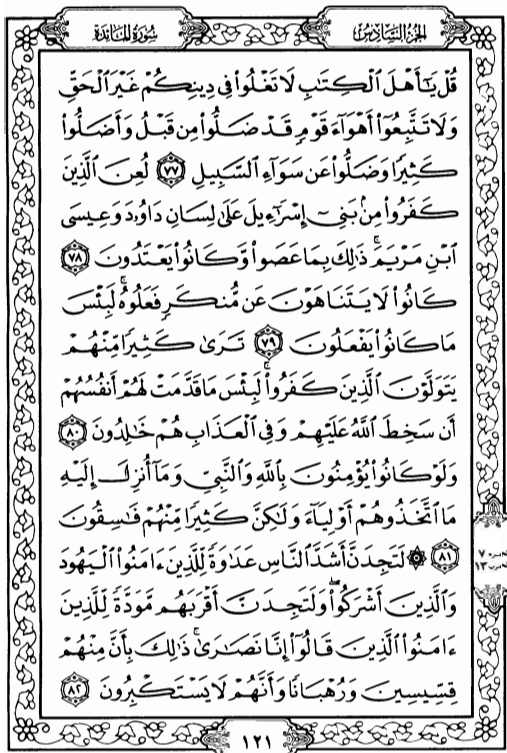 الجزء السادس
سورة المائدة
قُلْ يَٰٓأَهْلَ ٱلْكِتَٰبِ لَا تَغْلُوا۟ فِى دِينِكُمْ غَيْرَ ٱلْحَقِّ
وَلَا تَتَّبِعُوٓا۟ أَهْوَآءَ قَوْمٍ قَدْ ضَلُّوا۟ مِن قَبْلُ وَأَضَلُّوا۟
كَثِيرًا وَضَلُّوا۟ عَن سَوَآءِ ٱلسَّبِيلِ ٧٧ لُعِنَ ٱلَّذِينَ
كَفَرُوا۟ مِنۢ بَنِىٓ إِسْرَٰٓءِيلَ عَلَىٰ لِسَانِ دَاوُۥدَ وَعِيسَى
ٱبْنِ مَرْيَمَ ۚ ذَٰلِكَ بِمَا عَصَوا۟ وَّكَانُوا۟ يَعْتَدُونَ ٧٨
كَانُوا۟ لَا يَتَنَاهَوْنَ عَن مُّنكَرٍ فَعَلُوهُ ۚ لَبِئْسَ
مَا كَانُوا۟ يَفْعَلُونَ ٧٩ تَرَىٰ كَثِيرًا مِّنْهُمْ
يَتَوَلَّوْنَ ٱلَّذِينَ كَفَرُوا۟ ۚ لَبِئْسَ مَا قَدَّمَتْ لَهُمْ أَنفُسُهُمْ
أَن سَخِطَ ٱللَّهُ عَلَيْهِمْ وَفِى ٱلْعَذَابِ هُمْ خَٰلِدُونَ ٨٠
وَلَوْ كَانُوا۟ يُؤْمِنُونَ بِٱللَّهِ وَٱلنَّبِىِّ وَمَآ أُنزِلَ إِلَيْهِ
مَا ٱتَّخَذُوهُمْ أَوْلِيَآءَ وَلَٰكِنَّ كَثِيرًا مِّنْهُمْ فَٰسِقُونَ
٨١ ۞ لَتَجِدَنَّ أَشَدَّ ٱلنَّاسِ عَدَٰوَةً لِّلَّذِينَ ءَامَنُوا۟ ٱلْيَهُودَ
وَٱلَّذِينَ أَشْرَكُوا۟ ۖ وَلَتَجِدَنَّ أَقْرَبَهُم مَّوَدَّةً لِّلَّذِينَ
ءَامَنُوا۟ ٱلَّذِينَ قَالُوٓا۟ إِنَّا نَصَٰرَىٰ ۚ ذَٰلِكَ بِأَنَّ مِنْهُمْ
قِسِّيسِينَ وَرُهْبَانًا وَأَنَّهُمْ لَا يَسْتَكْبِرُونَ ٨٢
١٢١